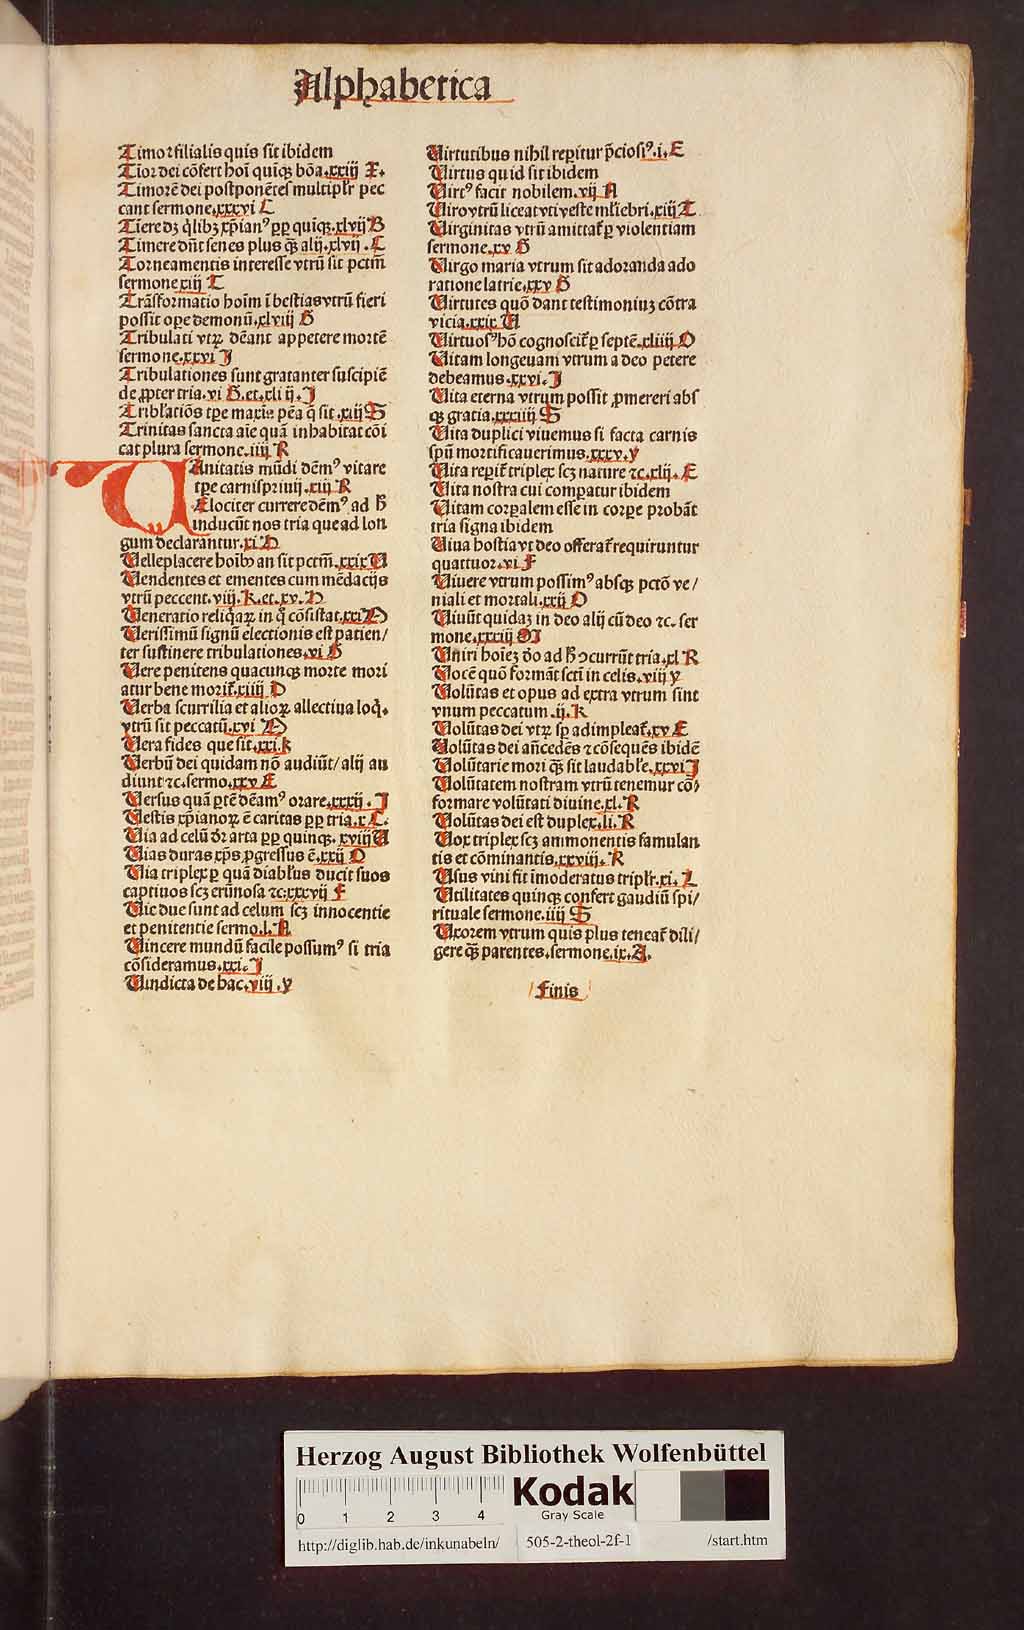 Alphabetica
Timor filialis quis sit ibidem
Tior dei cōfert hoī quiqꝫ bōa.xxiij X.
Timorē dei postponētes multiplr̄ pec
cant sermone.xxxvi C
Tiere dꝫ q̄libꝫ xp̄ianꝰ ꝓpꝑ quīqꝫ.xlvij B
Timere dn̄t senes plus q̄ꝫ alij.xlvij.C
Torneamentis interesse vtrū sit pctm̄
sermone xiij T
Trāsformatio hoīm ī bestias vtrū fieri
possit oꝑe demonū.xlviij G
Tribulati vtꝝ dēant appetere mortē
sermone.xxvi J
Tribulationes sunt gratanter suscipiē
de ꝓpter tria.vi G.et.xli ij.J
Tribl̄atiōs tꝑe maxīa pēa q̄ sit.xiij S
Trinitas sancta aīe quā inhabitat cōi
cat plura sermone.iiij R
VAnitatis mūdi dēmꝰ vitare
tꝑe carnispriuij.xiij R
Elociter currere dēmꝰ ad h̄
inducūt nos tria que ad lon
gum declarantur.xi D
Velle placere hoībꝫ an sit pctm̄.xxix A
Vendentes et ementes cum mēdacijs
vtrū peccent.viij.K.et.xv.D
Veneratio reliq̄aꝝ in q̄ cōsistat.xxi M
Verissimū signū electionis est patien/
ter sustinere tribulationes.vi G
Vere penitens quacunqꝫ morte mori
atur bene morit᷑.xiiij D
Verba scurrilia et alioꝝ allectiua loq̄.
vtrū sit peccatū.xvi M
Vera fides que sit.xxi.k
Verbū dei quidam nō audiūt/ alij au
diunt ⁊c.sermo.xxv E
Versus quā ꝑtē dēamꝰ orare.xxxij.J
Vestis xp̄ianoꝝ ē caritas ꝓpꝑ tria.x C.
Via ad celū dr̄ arta ꝓpꝑ quinqꝫ.xviij A
Vias duras xp̄s ꝓgressus ē.xxij O
Via triplex ꝑ quā diabl̄us ducit suos
captiuos scꝫ erūnosa ⁊c:xxxvij F
Vie due sunt ad celum scꝫ innocentie
et penitentie sermo.l.A
Vincere mundū facile possumꝰ si tria
cōsideramus.xxi.J
Vindicta de hac.viij.y
Virtutibus nihil reꝑitur p̄ciosiꝰ.i.E
Virtus quid sit ibidem
Virtꝰ facit nobilem.vij A
Viro vtrū liceat vti veste ml̄iebri.xiij T
Virginitas vtrū amittat᷑ ꝑ violentiam
sermone.xv G
Virgo maria vtrum sit adoranda ado
ratione latrie.xxv G
Virtutes quō dant testimoniuꝫ cōtra
vicia.xxix A
Virtuosꝰ hō cognoscit᷑ ꝑ septē.xliiij O
Vitam longeuam vtrum a deo petere
debeamus.xxvi.J
Vita eterna vtrum possit ꝓmereri abs
qꝫ gratia.xxxiiij S
Vita duplici viuemus si facta carnis
spū mortificauerimus.xxxv.y
Vita reꝑit᷑ triplex scꝫ nature ⁊c.xlij.E
Vita nostra cui comꝑatur ibidem
Vitam corꝑalem esse in corꝑe probāt
tria signa ibidem
Viua hostia vt deo offerat᷑ requiruntur
quattuor.vi F
Viuere vtrum possimꝰ absqꝫ pctō ve/
niali et mortali.xxij O
Viuūt quidaꝫ in deo alij cū deo ⁊c. ser
mone.xxxiij M
Vniri hoīeꝫ dō ad h̄ ↄcurrūt tria.xl R
Vocē quō formāt scti in celis.viij y
Volūtas et opus ad extra vtrum sint
vnum peccatum.ij.k
Volūtas dei vtꝝ sp̄ adimpleat᷑.xv E
Volūtas dei an̄cedēs ⁊ cōsequēs ibidē
Volūtarie mori q̄ꝫ sit laudabl̄e.xxvi J
Volūtatem nostram vtrū tenemur cō/
formare volūtati diuine.xl.R
Volūtas dei est duplex.li.R
Vox triplex scꝫ ammonentis famulan
tis et cōminantis.xxviij.R
Vsus vini fit īmoderatus triplr̄.xi.L
Vtilitates quinqꝫ confert gaudiū spi/
rituale sermone.iiij S
Vxorem vtrum quis plus teneat᷑ dili/
gere q̄ꝫ parentes.sermone.ix.A.
Finis
Herzog August Bibliothek Wolfenbüttel
0 1 2 3 4
Kodak
Gray Scale
http://diglib.hab.de/inkunabeln/ 505-2-theol-2f-1 /start.htm